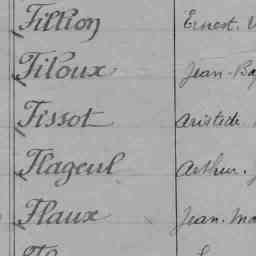 Fillion Ernest
Filoux Jean-Ba
Fissot Aristide
Flageul Arthur.
Flaux Jean. Ma